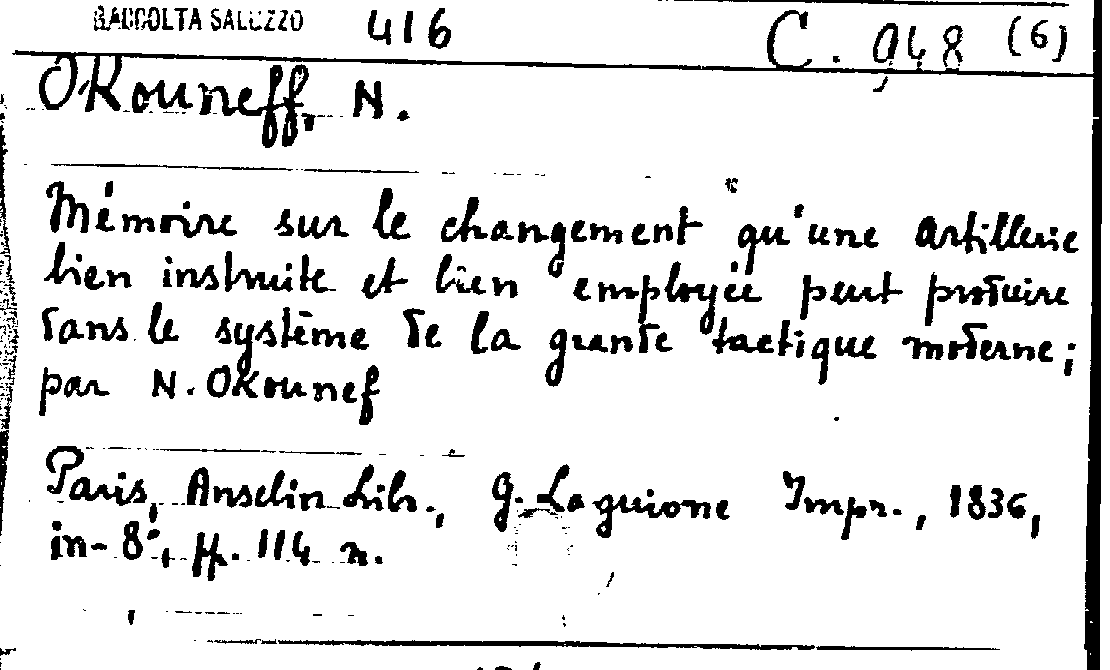 RACCOLTA SALUZZO 416 C. 948 (6)
Okouneff, N.
Mémoire sur le changement qu'une artillerie
bien instruite et bien employée peut produire
dans le système de la grande tactique moderne;
par N. Okounef
Paris, Anselin Libr., G. Laguione Impr., 1836,
in-8°, pp. 114 n.